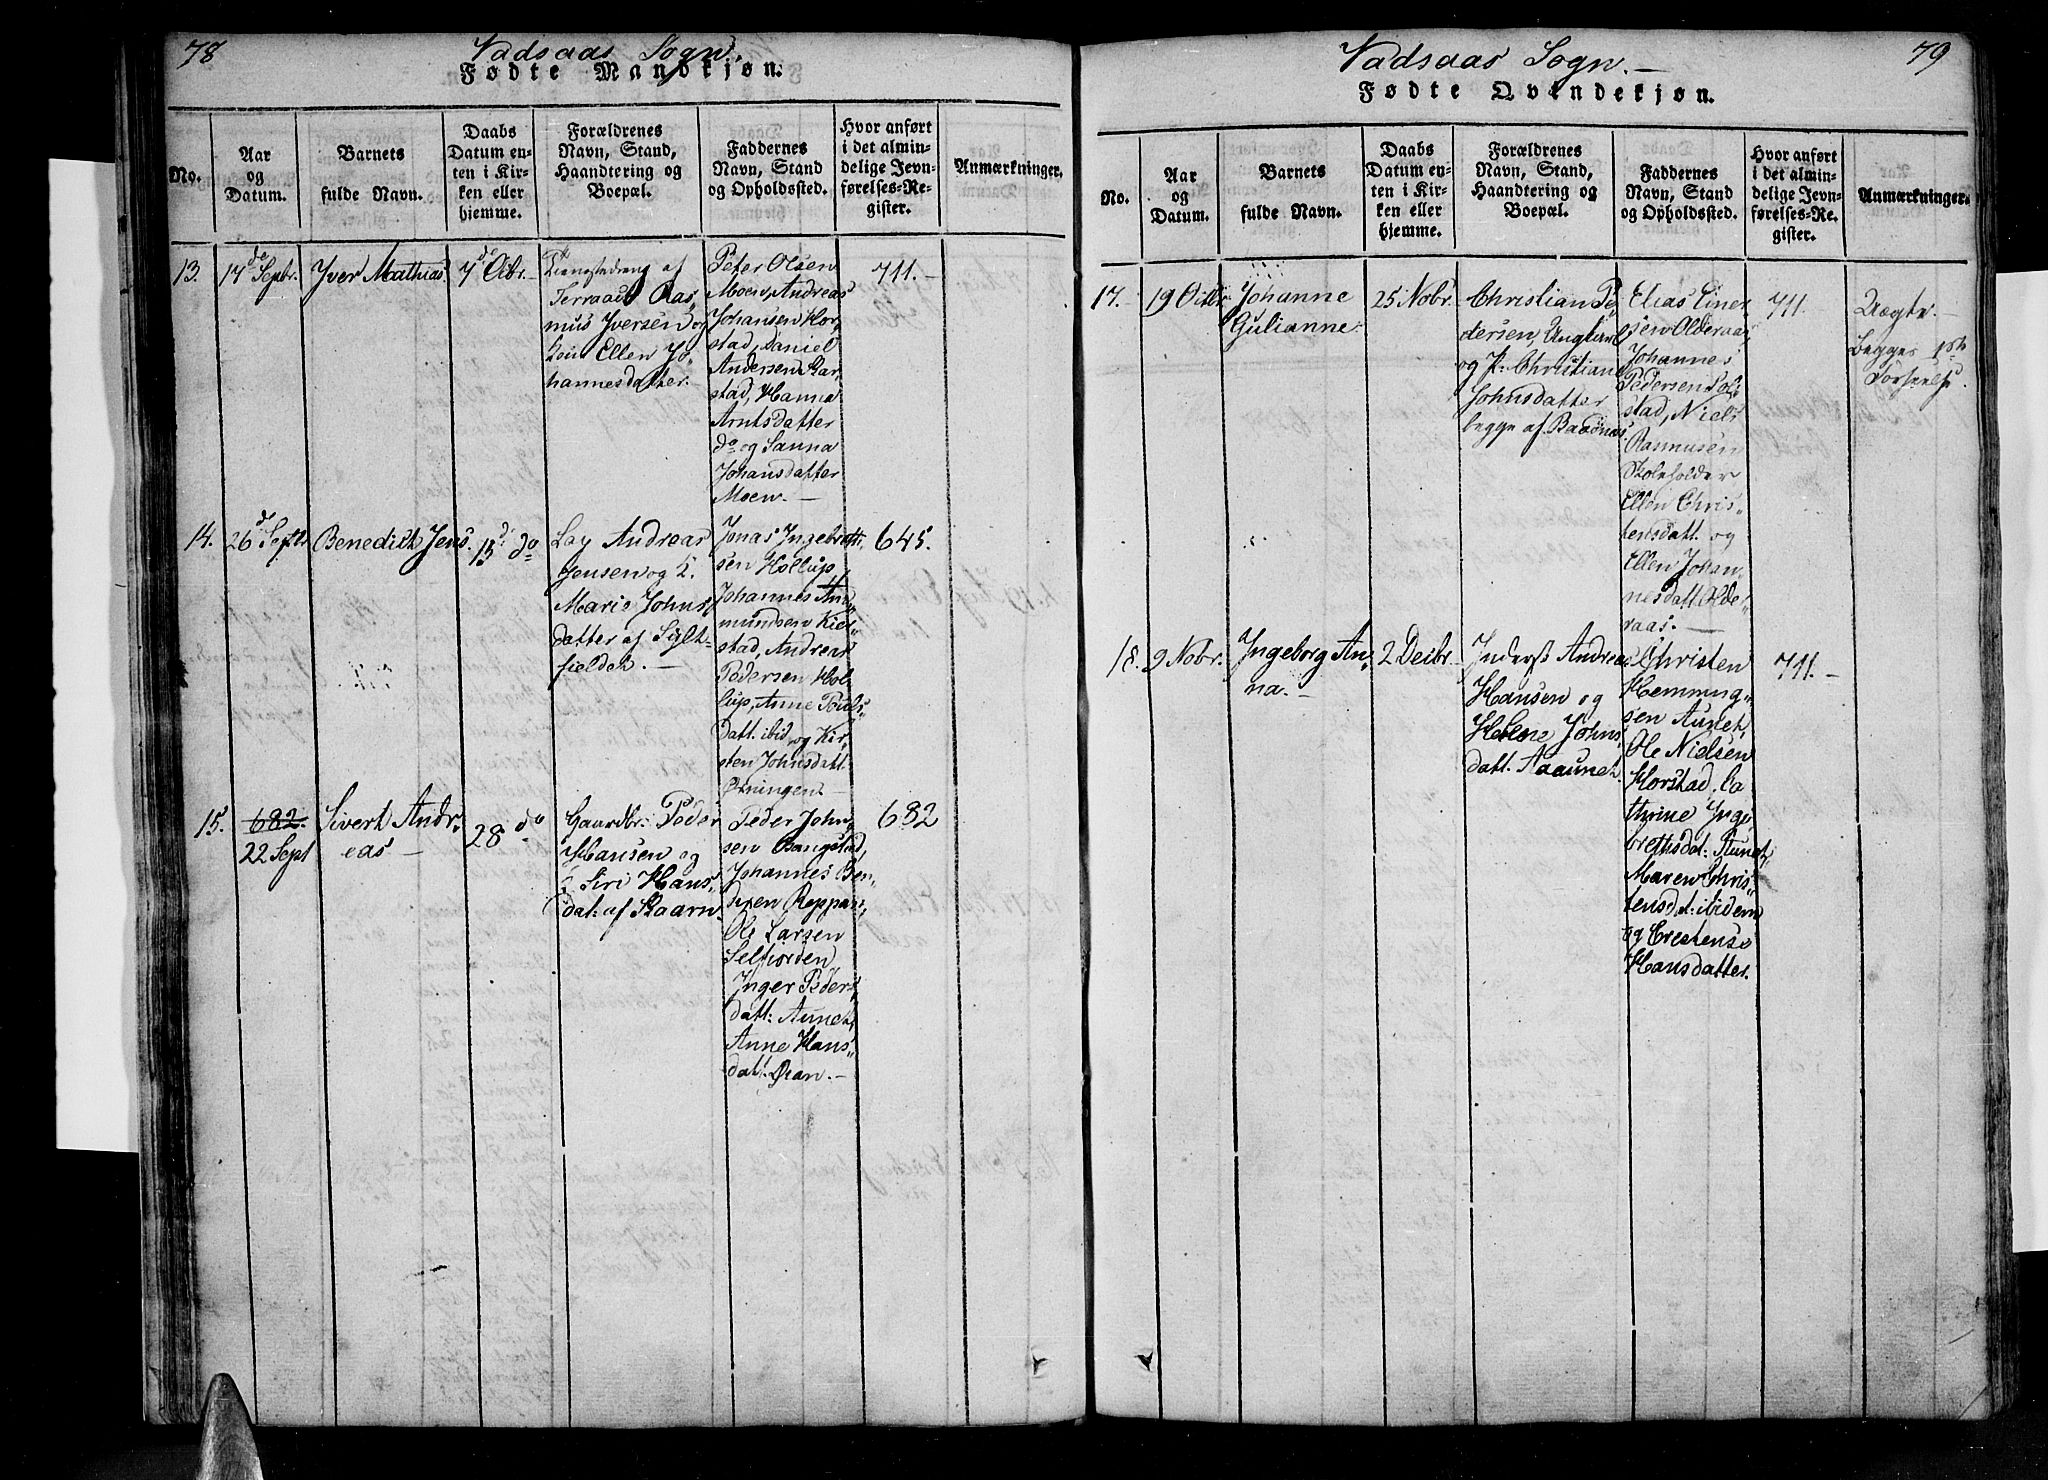 78
Vadsaas Sogn.
Fødte Mandkjøn.
No.
Aar
og
Datum.
Barnets
fulde Navn.
Daabs
Datum en-
ten i Kir-
ken eller
hjemme.
Forældrenes
Navn, Stand,
Haandtering og
Boepæl.
Faddernes
Navn, Stand
og Opholdssted.
Hvor anført
i det almin-
delige Jevn-
førelses-Re-
gister.
Anmærkninger.
13.
17de Septbr.
Yver Mathias
7de Octbr.
af
Ras,
mus Yversen og
Kone Ellen Jo,
hannesdatter.
Peter Olsen
Moen, Andreas
Johansen Hor,
stad, Daniel
Andersen Kar,
stad, Hanna
Arntsdatter
do og Sanna
Johansdatter
Moen. —
711. —
14.
26d Septbr
Benedikt Jens.
13d do
Andreas
Jensen og K.
Marie Johns,
datter af
fieldet. —
Jonas Ingebrigtt,
sen Hollup
Johannes And,
mundsen Kier,
stad, Andreas
Pedersen Hol,
lup, Anne Pouls,
datt. ibid og Kir,
sten Johnsdatt.
Ørningen. —
645.
15.
682.
22 Sept
Sivert Andr,
eas —
28 do
Gaardbr. Peder
Hansen og
K. Siri Hans,
dat: af Skaarn.
Peder John,
sen Bangstad,
Johannes Ben,
dixen Reppan,
Ole Larsen
Selfiorden
Inger Peders,
datt: Aunet,
Anne Hans,
datt. Øran. —
682
79
Vadsaas Sogn. —
Fødte Qvindekjøn.
No.
Aar
og
Datum.
Barnets
fulde Navn.
Daabs
Datum en-
ten i Kir-
ken eller
hjemme.
Forældrenes
Navn, Stand,
Haandtering og
Boepæl.
Faddernes
Navn, Stand
og Opholdssted.
Hvor anført
i det almin-
delige Jevn-
førelses-Re-
gister.
Anmærkninger.
17.
19 Octbr
Johanne
Gulianne.
25 Nobr.
Christian Pe,
dersen, Ungkarl
og P: Christiane
Johnsdatter
begge af Baadnas.
Elias Einer,
sen Olderaas,
Johannes
Pedersen Sol,
stad, Niels
Rasmusen
Skoleholder
Ellen Chris,
tensdatt. og
Ellen Johan,
nesdatt. Olde,
raas. —
711.
Uægte. —
begges 1ste
Forseelse.
18.
9 Nobr.
Ingeborg An,
na. —
2 Decbr.
Inderst Andreas
Hansen og
Helene Johns,
datt. Aaunet.
Christen
Hemming,
sen Aunet,
Ole Nielsen
Horstad, Ca,
thrine Inge,
brethsdat: Aunet,
Maren Chris,
tensdat: ibidem
og Crestense
Hansdatter.
711. —